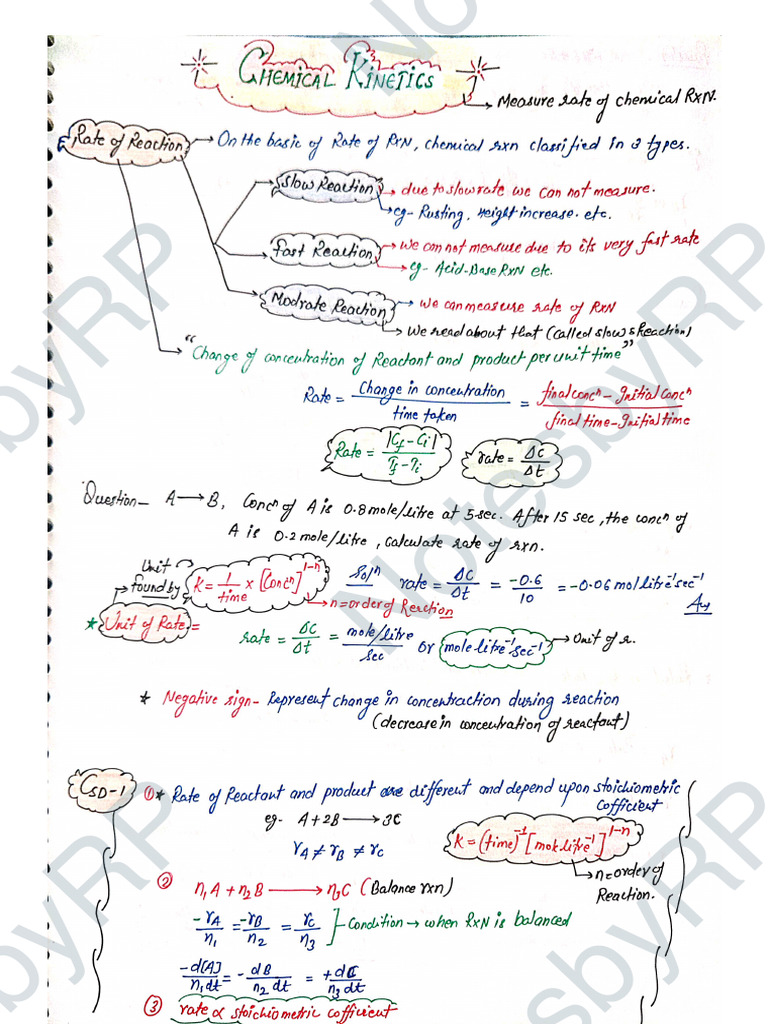 CHEMICAL KINETICS
→ Measure rate of chemical RXN.
Rate of Reaction → On the basic of Rate of RXN, chemical rxn classified in 3 types.
Slow Reaction → due to slow rate we can not measure.
→ eg- Rusting, Height increase. etc.
fast Reaction → We can not measure due to its very fast rate
→ eg- Acid-Base RXN etc.
Modrate Reaction → We can measure rate of RXN
→ We read about that (called slow s Reaction)
"Change of concentration of Reactant and product per unit time"
Rate = Change in concentration / time taken = final concⁿ - Initial concⁿ / final time - Initial time
Rate = |Cf - Ci| / Tf - Ti
rate = ΔC / Δt
Question- A → B, Concⁿ of A is 0.8 mole/litre at 5 sec. After 15 sec, the concⁿ of
A is 0.2 mole/litre, calculate rate of rxn.
Unit found by → K = 1/time × [Concⁿ]^1-n
→ n = order of Reaction
Solⁿ rate = ΔC/Δt = -0.6/10 = -0.06 mol litre⁻¹ sec⁻¹
Ans
* Unit of Rate = rate = ΔC/Δt = mole/litre / sec or mole litre⁻¹ sec⁻¹ → Unit of r.
* Negative sign - Represent change in concentraction during reaction
(decrease in concentration of reactant)
CSD-1
① * Rate of Reactant and product are different and depend upon stoichiometric
cofficient
eg- A + 2B → 3C
rA ≠ rB ≠ rC
K = (time)⁻¹ [mole litre⁻¹]^1-n
→ n = order of
Reaction.
② n₁A + n₂B → n₃C (Balance rxn)
-rA/n₁ = -rB/n₂ = rC/n₃ } Condition → when RXN is balanced
-d[A]/n₁dt = - dB/n₂dt = + dC/n₃dt
③ rate α stoichiometric coefficient
NotesbyRP
NotesbyRP